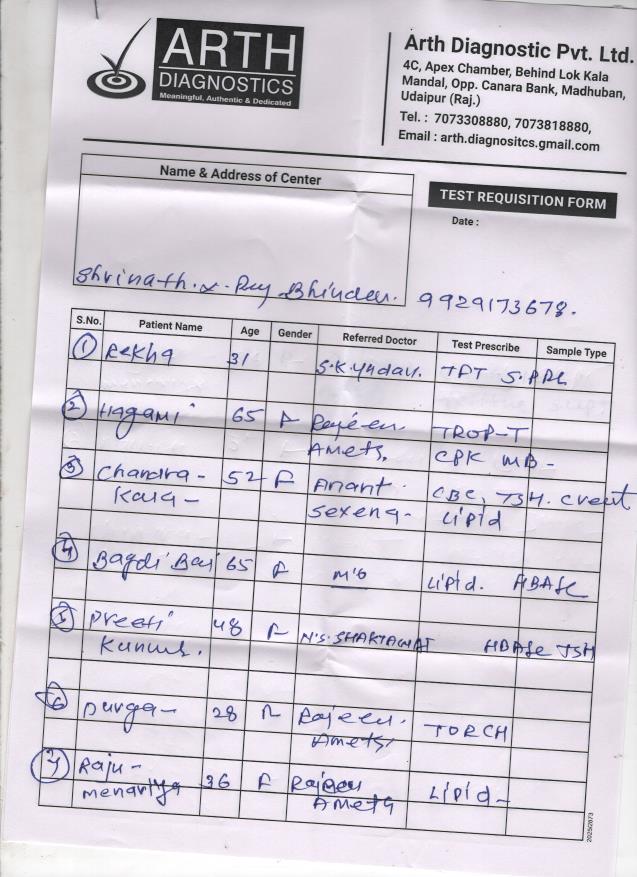 ARTH
DIAGNOSTICS
Meaningful, Authentic & Dedicated
Arth Diagnostic Pvt. Ltd.
4C, Apex Chamber, Behind Lok Kala
Mandal, Opp. Canara Bank, Madhuban,
Udaipur (Raj.)
Tel. : 7073308880, 7073818880,
Email : arth.diagnositcs.gmail.com
Name & Address of Center
TEST REQUISITION FORM
Date :
Shrinath. X-Ray Bhinder. 9929173678.
S.No. Patient Name Age Gender Referred Doctor Test Prescribe Sample Type
1 Rekha 31 S.K. Yadav.
2 Hagami 65 F
Ameta. TROP-T
CPK MB -
3 Chandra- 52 F Anant CBC, TSH. Creat
Kala- Sexena- Lipid
4 Bagdi Bai 65 F M'G Lipid. HBA1C
5 Preeti 48 F N.S. SHAKTAWAT HBA1C TSH
Kunwr.
6 Durga- 28 F Rajeev. TORCH
Ameta.
7 Raju- 36 F Rajeev Lipid-
menariya Ameta
2025/2873